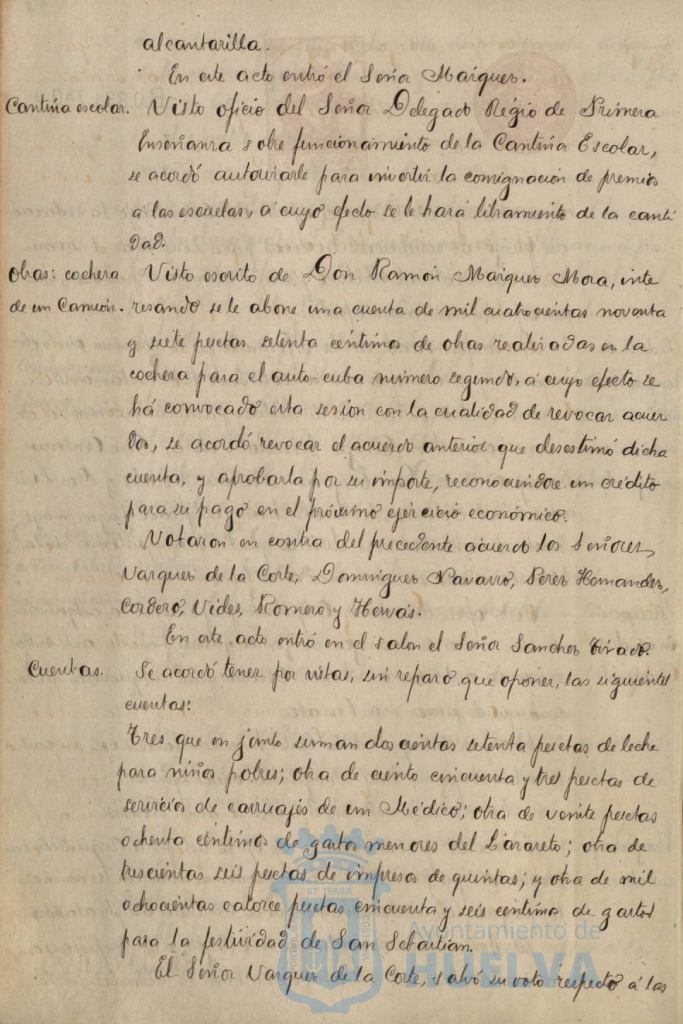 alcantarilla.
En este acto entró el Señor Marquez.
Cantina escolar. Visto oficio del Señor Delegado Regio de Primera
Enseñanza sobre funcionamiento de la Cantina Escolar,
se acordó autorizarle para invertir la consignación de premios
a las escuelas, á cuyo efecto se le hará libramiento de la canti
dad.
Obras: cochera Visto escrito de Don Ramón Marquez Mora, inte
de un Camión. resando se le abone una cuenta de mil cuatrocientas noventa
y siete pesetas setenta céntimos de obras realizadas en la
cochera para el auto-cuba número segundo, á cuyo efecto se
há convocado esta sesión con la cualidad de revocar acuer
dos, se acordó revocar el acuerdo anterior que desestimó dicha
cuenta, y aprobarla por su importe, reconociendose un crédito
para su pago en el próximo ejercicio económico.
Votaron en contra del precedente acuerdo los Señores,
Vazquez de la Corte, Dominguez Navarro, Perez Hernandez,
Cordero, Vides, Romero y Hervás.
En este acto entró en el salon el Señor Sanchez Tirado.
Cuentas. Se acordó tener por vistas, sin reparo que oponer, las siguientes
cuentas:
Tres que en junto suman doscientas setenta pesetas de leche
para niños pobres; otra de ciento cincuenta y tres pesetas de
servicios de carruajes de un Médico; otra de veinte pesetas
ochenta céntimos de gastos menores del Lazareto; otra de
trescientas seis pesetas de impresos de quintas; y otra de mil
ochocientas catorce pesetas cincuenta y seis centimos de gastos
para la festividad de San Sebastian.
El Señor Vazquez de la Corte, salvó su voto respecto á las
Ayuntamiento de
HUELVA